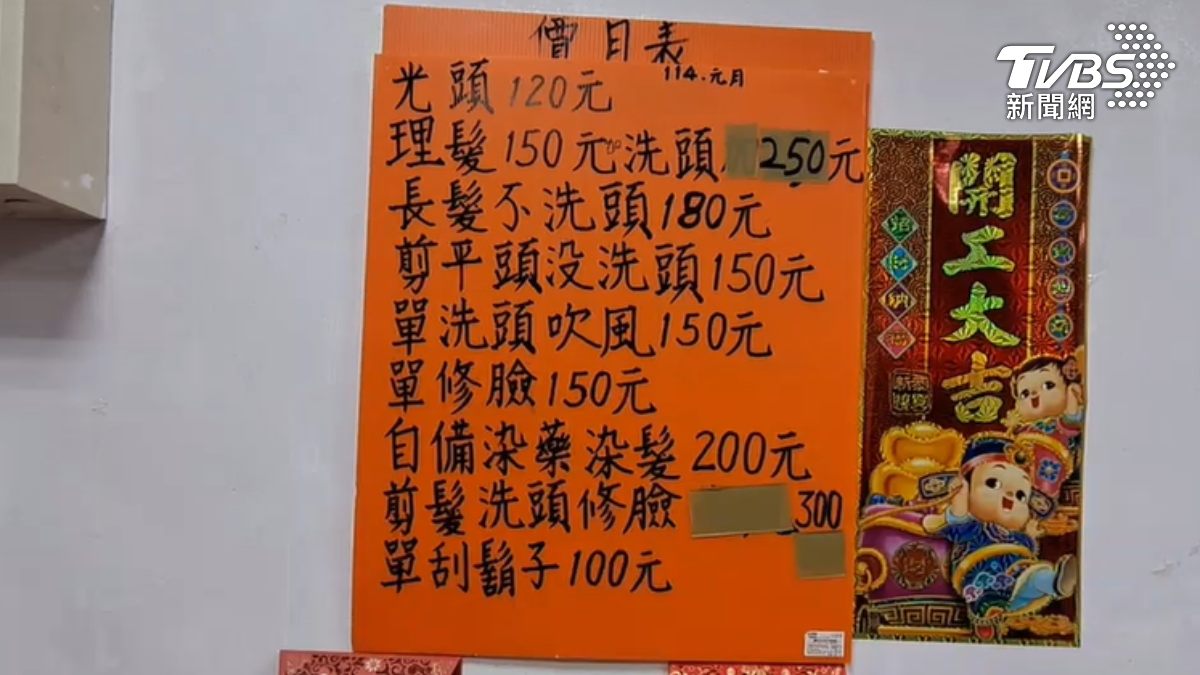 價目表
114.元月
光頭120元
理髮150元加洗頭250元
長髮不洗頭180元
剪平頭没洗頭150元
單洗頭吹風150元
單修臉150元
自備染藥染髮200元
剪髮洗頭修臉300
單刮鬍子100元
TVBS
新聞網
開工大吉
招財納福